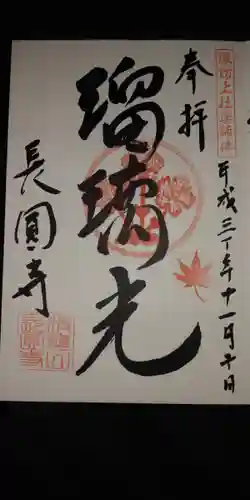 奉拝
平成三十年十一月十日
瑠璃光
長圓寺